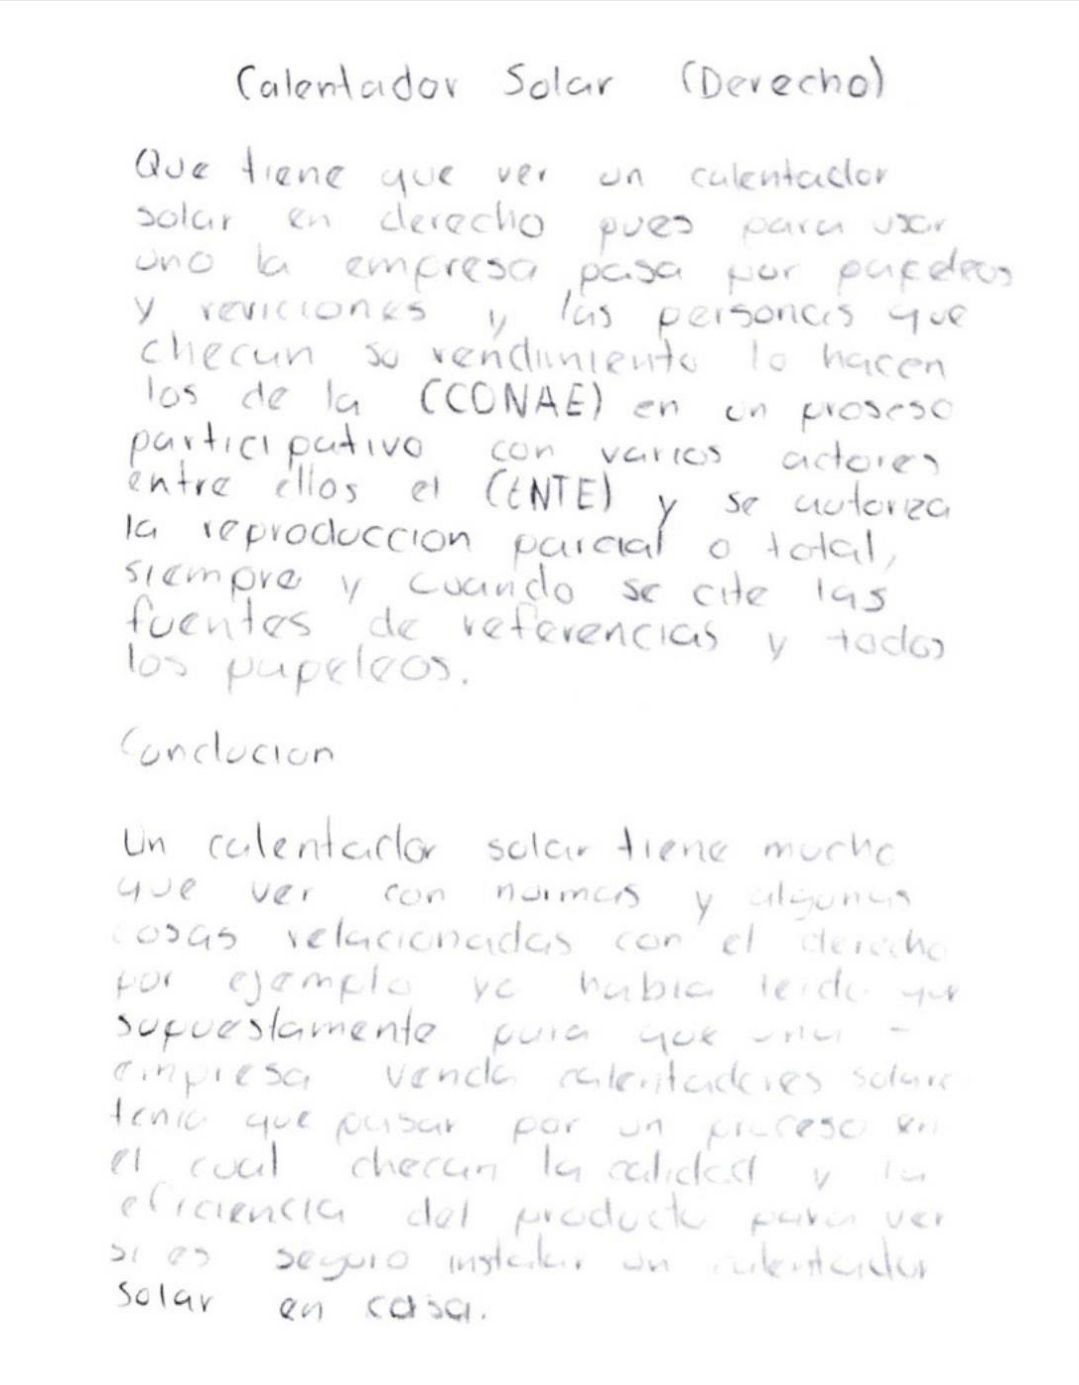 Calentador Solar (Derecho)
Que tiene que ver un calentador
solar en derecho pues para usar
uno la empresa pasa por papeleos
y reviciones y las personas que
checan su rendimiento lo hacen
los de la (CONAE) en un proseso
participativo con varios actores
entre ellos el (ENTE) y se autoriza
la reproduccion parcial o total,
siempre y cuando se cite las
fuentes de referencias y todos
los papeleos.
Conclucion
Un calentador solar tiene mucho
que ver con normas y algunas
cosas relacionadas con el derecho
por ejemplo yo habia leido que
supuestamente para que una -
empresa venda calentadores solare
tenia que pasar por un proceso en
el cual checan la calidad y la
eficiencia del producto para ver
si es seguro instalar un calentador
solar en casa.